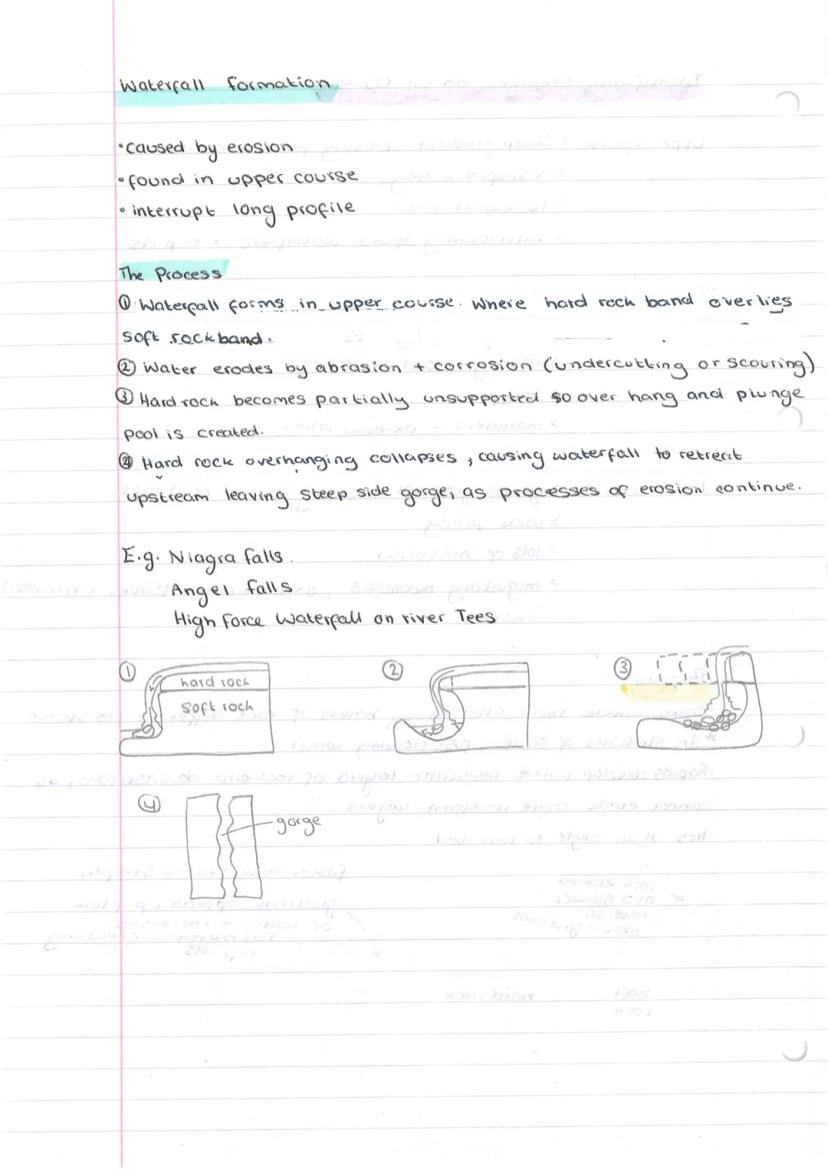 Waterfall formation
•caused by erosion
•found in upper course
•interrupt long profile
The Process
① Waterfall forms in upper course. Where hard rock band overlies
soft rock band.
② Water erodes by abrasion + corrosion (undercutting or scouring)
③ Hard rock becomes partially unsupported so over hang and plunge
pool is created.
④ Hard rock overhanging collapses, causing waterfall to retreat
upstream leaving steep side gorge, as processes of erosion continue.
E.g. Niagra falls.
Angel falls
High Force Waterfall on river Tees
① ② ③
hard rock
soft rock
④
gorge